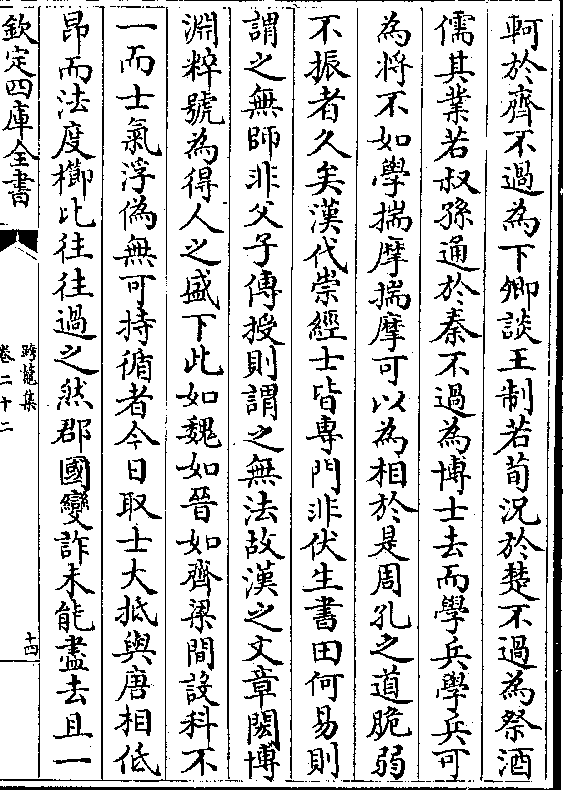 軻於齊不過為下卿談王制若荀况於楚不過為祭酒
儒其業若叔孫通於秦不過為博士去而學兵學兵可
為將不如學揣摩揣摩可以為相於是周孔之道脆弱
不振者久矣漢代崇經士皆專門非伏生書田何易則
謂之無師非父子傳授則謂之無法故漢之文章閎博
淵粹號為得人之盛下此如魏如晉如齊梁間設科不
一而士氣浮偽無可持循者今日取士大抵與唐相低
昂而法度櫛比往往過之然郡國變詐未能盡去且一
欽定四庫全書
跨鼇集
卷二十二
十四